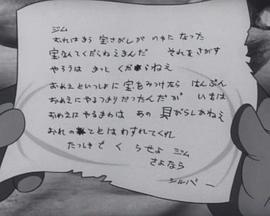 ジム
おれはもう宝さがしが いやになった
宝なんてくだらねえもんだ それをさがす
やろうは もっとくだらねえ
おめえといっしょに宝をみつけたら はんぶん
おめえにやるつもりだったんだが いまは
おめえにやるものは あの 貝がらしかねえ
おれの とはわすれてくれ
たっしゃで くらせよ ジム
さよなら
シルバー